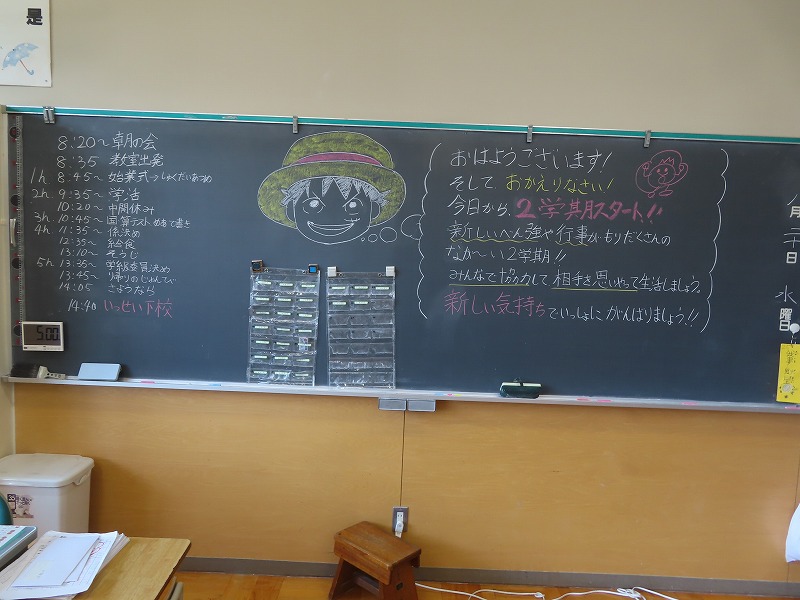 是
8:20〜 朝の会
8:35 教室出発
1h 8:45〜 始業式→しゅくだいあつめ
2h 9:35〜 学活
10:20〜 中間休み
3h 10:45〜 国算テスト めあて書き
4h 11:35〜 係決め
12:35〜 給食
13:10〜 そうじ
5h 13:35〜 学級委員決め
13:45〜
14:05 さようなら
14:40 いっせい下校
おはようございます!
そして、おかえりなさい!
今日から、2学期スタート!!
新しいべん強や行事がもりだくさんの
なか〜い2学期!!
みんなで協力して、相手を思いやって生活しましょう。
新しい気持ちでいっしょにがんばりましょう!!
月
二十
日
水
曜日
5:00